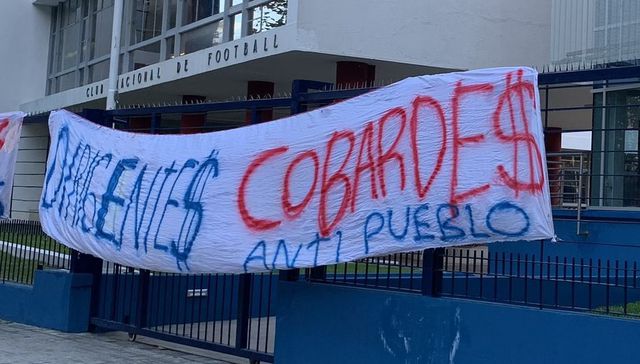 CLUB NACIONAL DE FOOTBALL
DIRIGENTE$ COBARDE$
ANTI PUEBLO